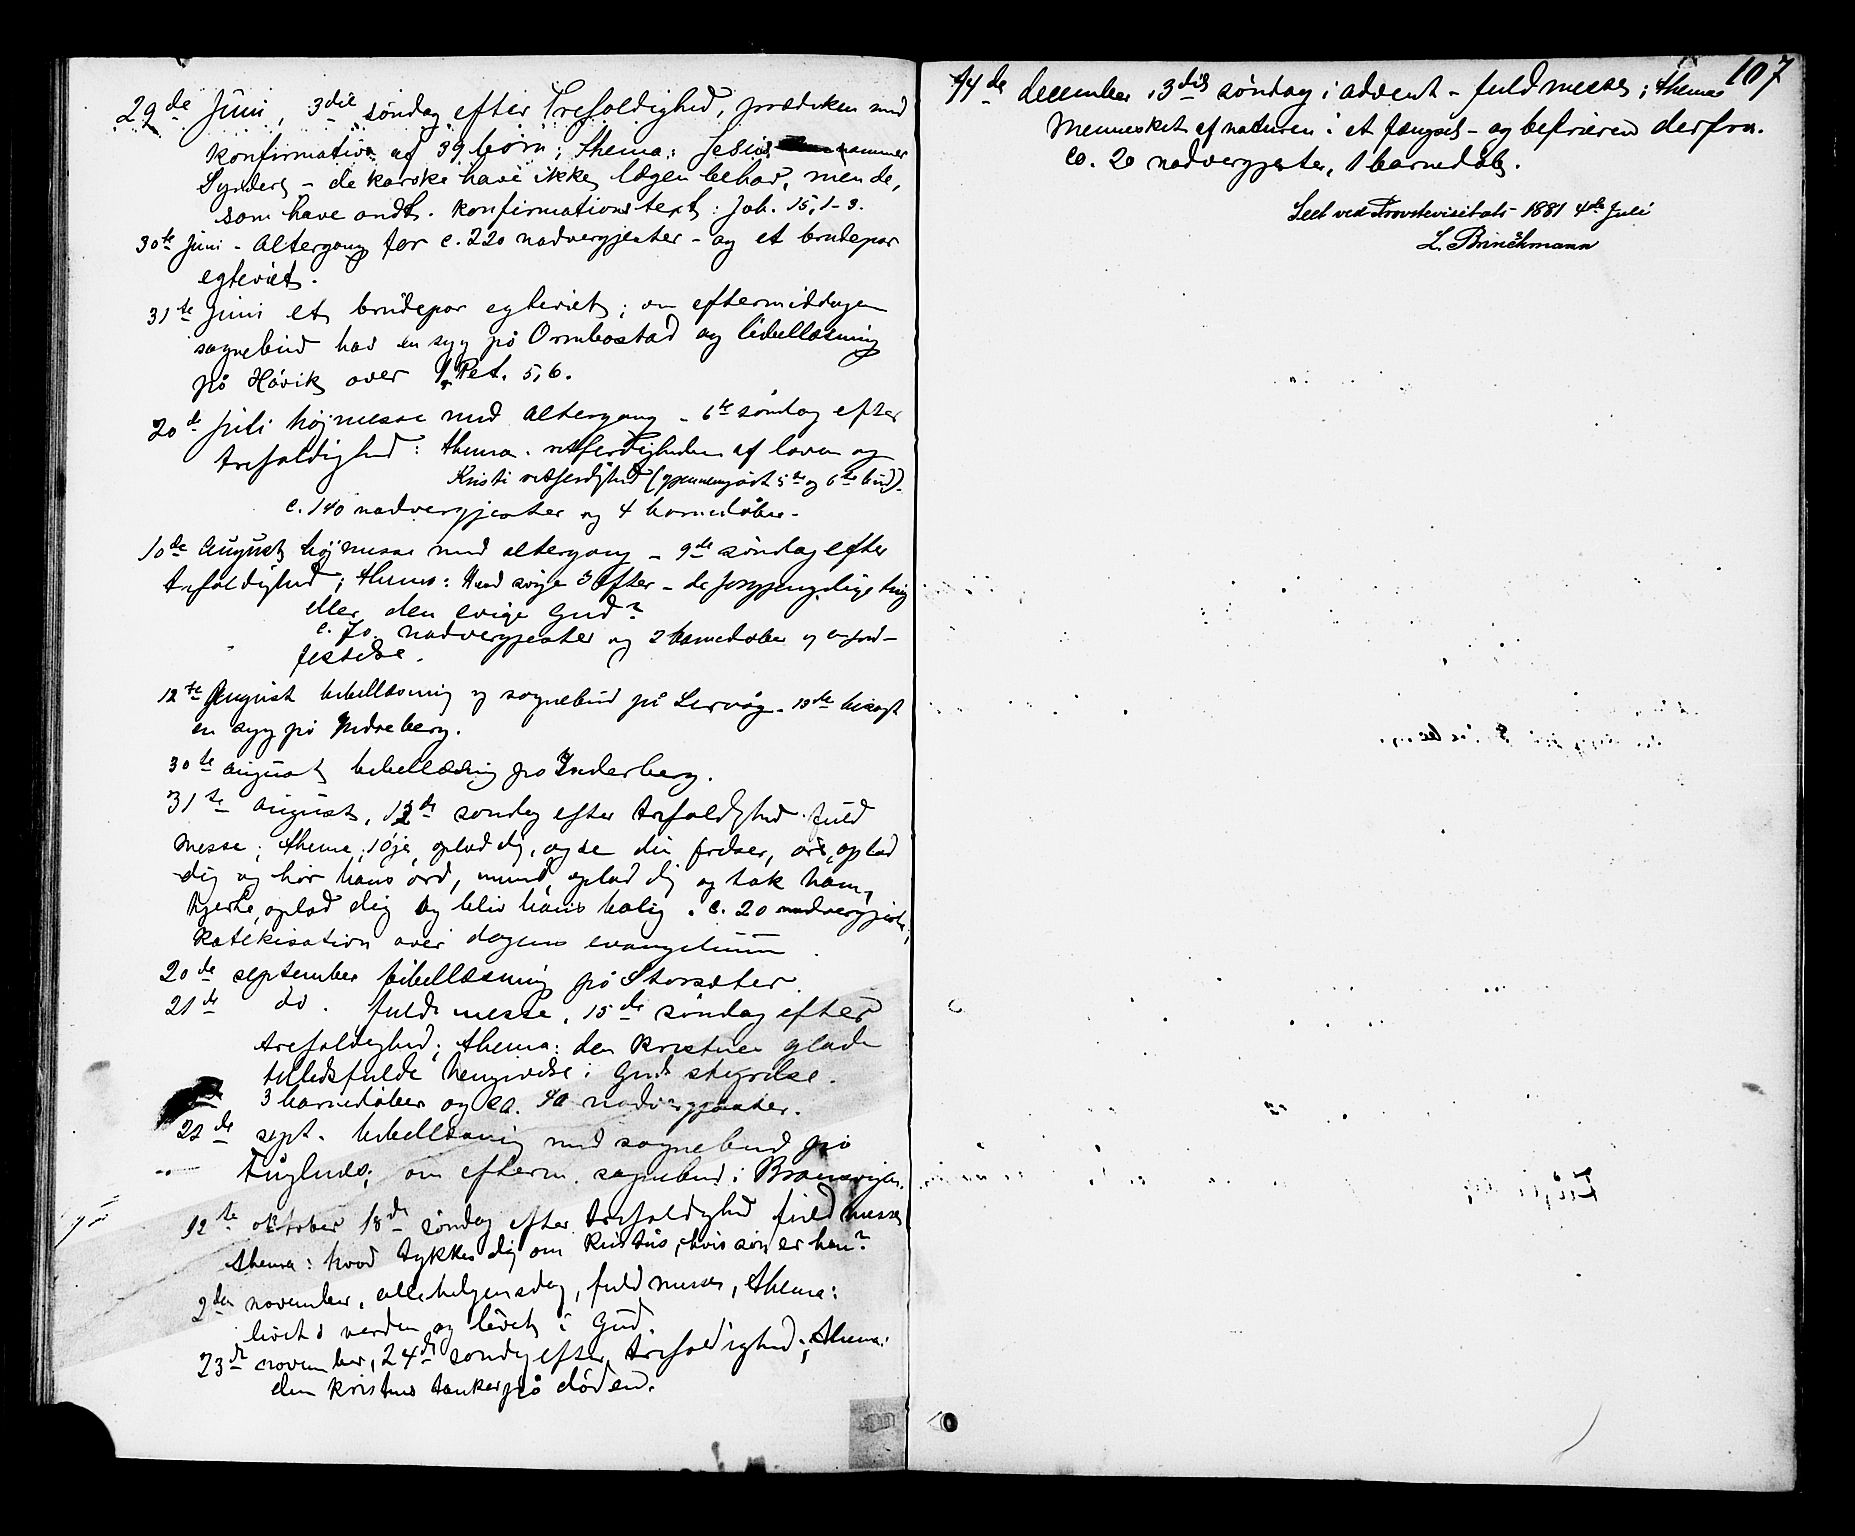 29de Juni, 3die søndag efter Trefoldighed, prædiken med
konfirmation af 39 børn; thema: Jesus annammer
Syndere - de karske have ikke lægen behov, men de,
som have ondt. konfirmationstext: Joh. 15, 1-9.
30te Juni - altergang for c. 220 nadvergjester - og et brudepar
egteviet.
31te Juni et brudepar egteviet; om eftermiddagen
sognebud hos en syg på Ormbostad og bibellæsning
på Håvik over 1 Pet. 5, 6.
20de Juli højmesse med altergang - 6te søndag efter
trefoldighed: thema: retferdigheden af loven og
Kristi retferdighed (gjennemgået 5te og 6te bud).
c. 140 nadvergjester og 4 barnedåber.
10de August højmesse med altergang - 9de søndag efter
trefoldighed; thema: Hvad søger I efter - de forgjengelige ting
eller den evige Gud?
c. 70 nadvergjester og 2 barnedåber og en jord-
festelse.
12te August bibellæsning og sognebud på Lervåg. 13de besøgt
en syg på Indreberg.
30te august bibellæsning på Inderberg.
31te august, 12te søndag efter trefoldighed fuld
messe; thema: øje, oplad dig, og se din frelser, øre, oplad
dig og hør hans ord, mund, oplad dig og tak ham,
hjerte, oplad dig og bliv hans bolig. c. 20 nadvergjester,
Katekisation over dagens evangelium.
20de september bibellæsning på Storsæter.
21de do. fuld messe, 15de søndag efter
trefoldighed; thema: den kristnes glade
tillidsfulde hengivelse i Guds styrelse.
3 barnedåber og ca. 40 nadvergjester.
22de sept. bibellæsning med sognebud på
Fuglnes; om efterm. sognebud i
12te oktober 18de søndag efter trefoldighed fuld messe
thema: hvad tykkes dig om Kristus, hvis søn er han?
2den november, allehelgensdag, fuld messe, thema:
livet i verden og livet i Gud.
23de november, 24de søndag efter trefoldighed; thema:
den kristnes tanker på døden.
107
14de december, 3die søndag i advent - fuld messe; thema
Mennesket af naturen i et fængsel - og befrieren derfra.
ca. 20 nadvergjester, 1 barnedåb.
Seet ved Provstevisitats 1881 4de Juli
L. Brinchmann